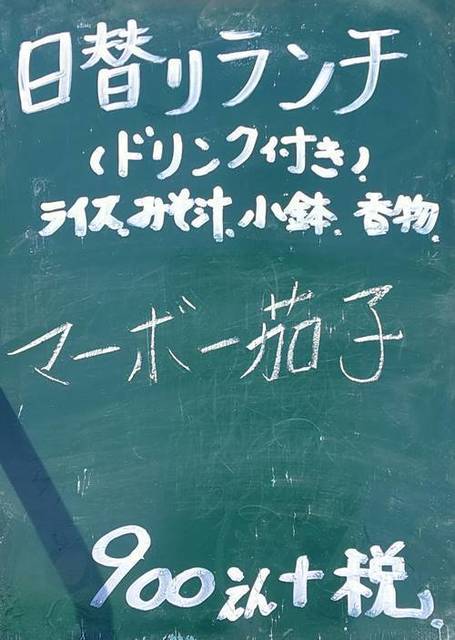 日替りランチ
(ドリンク付き)
ライス、みそ汁、小鉢、香物、
マーボー茄子
900えん+税